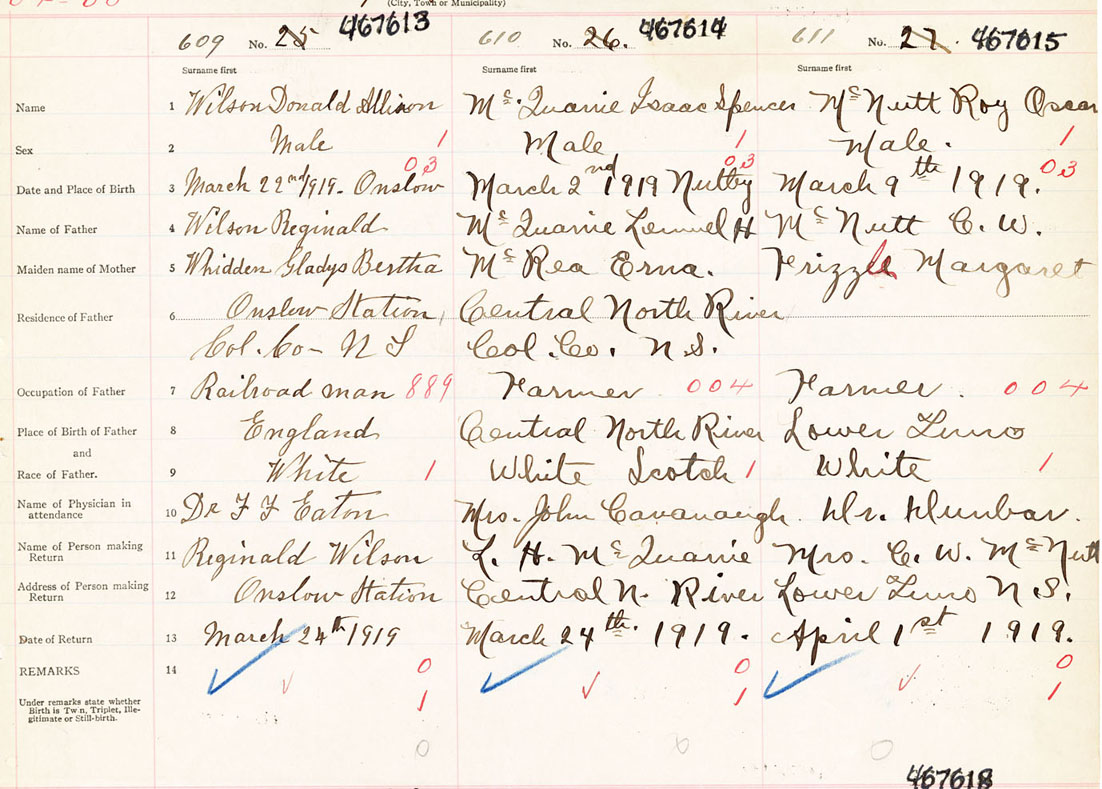 (City, Town or Municipality)
609 No. 25 467613 610 No. 26. 467614 611 No. 27. 467615
Surname first Surname first Surname first
Name 1 Wilson Donald Allison Mc. Quarrie Isaac Spencer McNutt Roy Oscar
Sex 2 Male 1 Male 1 Male. 1
03 03 03
Date and Place of Birth 3 March 22nd/1919- Onslow March 2nd 1919 Nuttby March 9th 1919.
Name of Father 4 Wilson Reginald McQuarrie Lemuel H McNutt C. W.
Maiden name of Mother 5 Whidden Gladys Bertha McRea Erna. Frizzle Margaret
Residence of Father 6 Onslow Station, Central North River
Col. Co- N S Col. Co. N.S.
Occupation of Father 7 Railroad man 889 Farmer 004 Farmer. 004
Place of Birth of Father 8 England Central North River Lower Truro
and
Race of Father. 9 White 1 White Scotch 1 White 1
Name of Physician in attendance 10 Dr F F Eaton Mrs. John Cavanaugh. Dr. Dunbar.
Name of Person making Return 11 Reginald Wilson L. H. McQuarrie Mrs. C. W. McNutt
Address of Person making Return 12 Onslow Station Central N. River Lower Truro N.S.
Date of Return 13 March 24th 1919 March 24th. 1919. April 1st 1919.
REMARKS 14 0 0 0
Under remarks state whether
Birth is Twin, Triplet, Ille-
gitimate or Still-birth.
1 1 1
0 0 0
467618